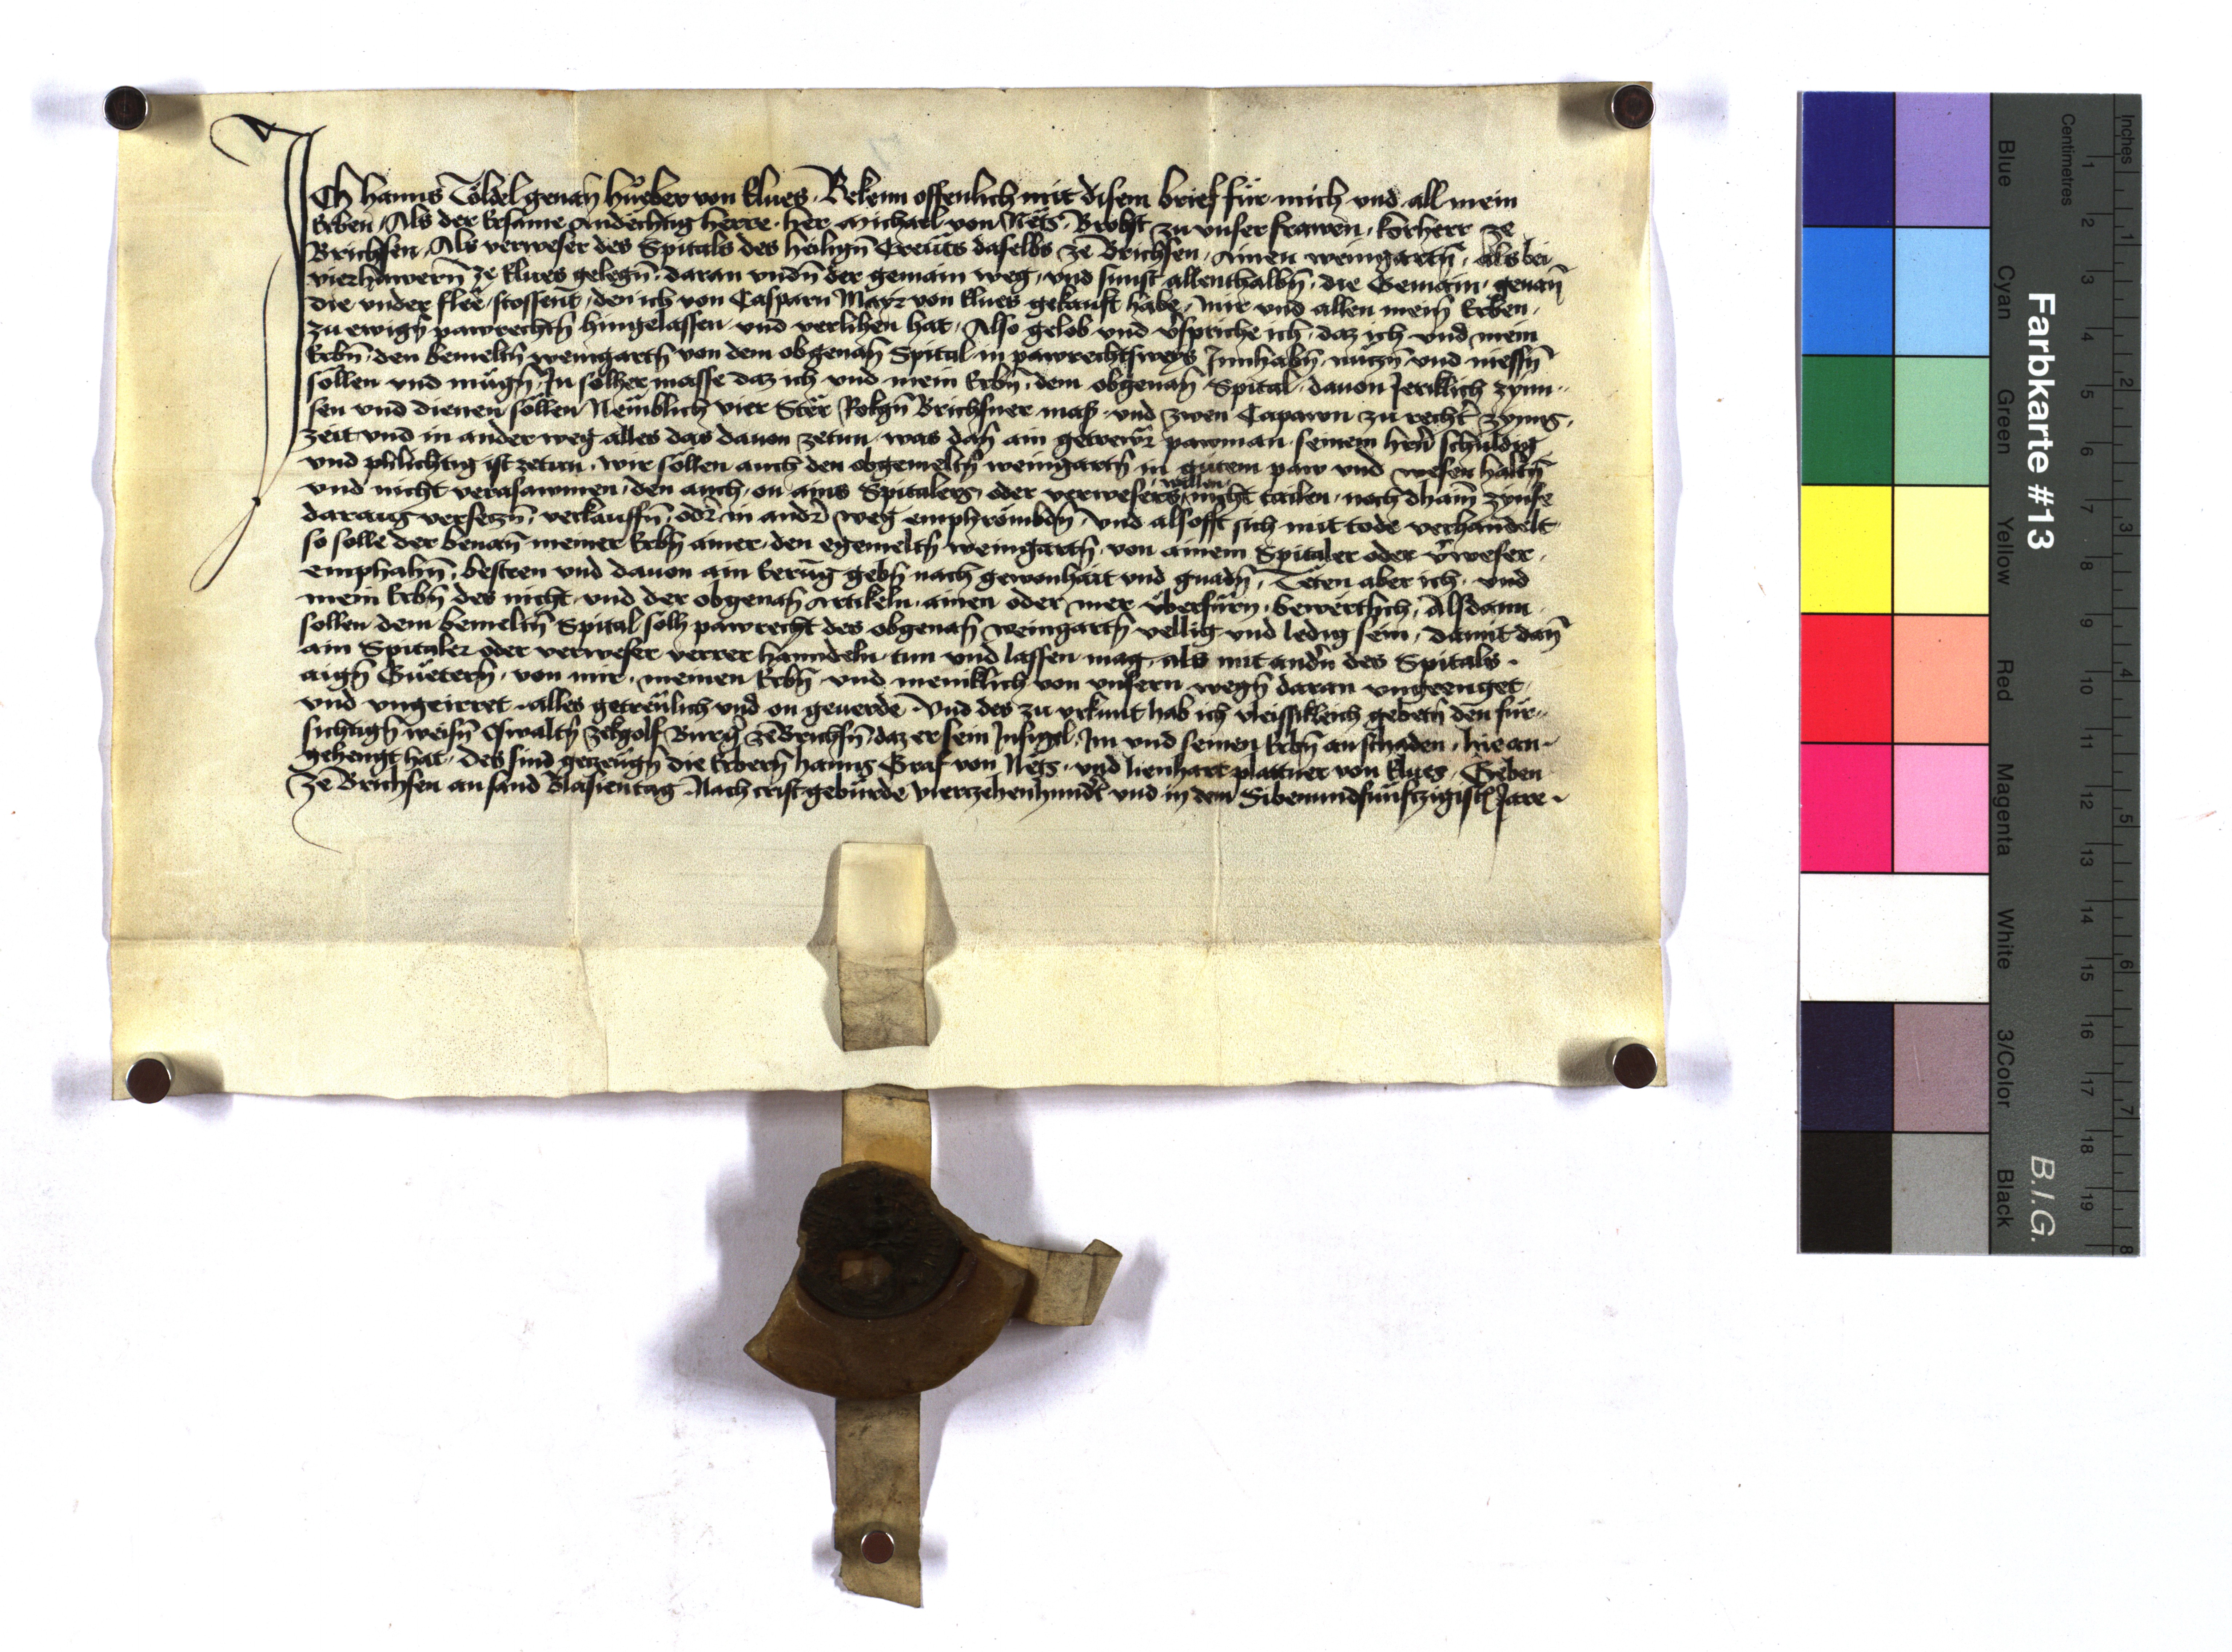 Ich Hanns Töldel genañ Hueber von Klues Bekenn offenlich mit disem brief für mich und all mein
Erben Als der Ersame Andechtig herre her Michael von Nëts Brobst zu unser frawen korherr ze
Brichsen Als verweser des Spitals des heiligñ Creuts daselbs ze Brichsen Ainen weingartñ als bei
vierhawern ze Klues gelegñ daran undñ der gemain weg und sunst allenthalbñ die Gemain genañ
die under flëe stossent den ich von Casparn Mayr von Klues gekauft habe mir und allen meiñ Erben
zu ewigñ pawrechtñ hingelassen und verlihen hat Also gelob und v̄spriche ich daz ich und mein
Erbñ den bemeltñ weingartñ von dem obgenañ Spital in pawrechtsweys Innhabñ nutzñ und niessñ
söllen und mügñ In sölher masse daz ich und mein Erbñ dem obgenañ Spital davon Jerklich zynn
sen und dienen söllen Nemblich vier Stër Rokgñ Brichsner maß und zwen Capawn zu recht̄ zynns
zeit und in ander weg alles das davon zetun was dañ ain getrewr pawman seinem herñ schuldig
und phlichtig ist zetun wir söllen auch den obgemeltñ weingartñ in gutem paw und wesen haltñ
und nicht verasawmen den auch on ains Spitalers oder verwesers willen nicht tailen noch dhain zynse
daraus versetzñ verkauffñ oder in ander weg emphrömbdñ und alsofft sich mit tode verhandelt
so solle der benañ meiner Erbñ ainer den egemeltñ weingartñ von ainem Spitaler oder v̄weser
emphahñ besteen und davon ain Erung gebñ nach gewonhait und gnadñ Täten aber ich und
mein Erbñ des nicht und der obgenañ Artikeln ainen oder mer überfürñ bewërtlich Alsdann
sollen dem bemeltñ Spital sölh pawrecht des obgenañ weingartñ vellig und ledig sein damit dañ
ain Spitaler oder verweser verrer hanndeln tun und lassen mag als mit andrñ des Spitals
aigñ Güeterñ von mir meinen Erbñ und meniklich von unsern wegñ daran ungeenget
und ungeirret alles getreulich und on geverde Und des zu urkunt hab ich vleissiklich gebetñ den für
sichtigñ weisñ Oswaltñ Zekgolf Burgr̄ ze Brichsñ daz er sein Insigel Im und seinen Erbñ an schaden hie an
gehengt hat des sind getzeugñ die Erberñ Hanns Graf von Nëts und Lienhart plattner von Klues Geben
Ze Brichsen an sand Blasientag Nach crist geburde vierzehenhundr̄t und in dem Sibenundfünftzigistñ Jare
Farbkarte #13
B.I.G.
Inches
Centimetres
1 2 3 4 5 6 7 8 9 10 11 12 13 14 15 16 17 18 19
1 2 3 4 5 6 7 8
Blue
Cyan
Green
Yellow
Red
Magenta
White
3/Color
Black